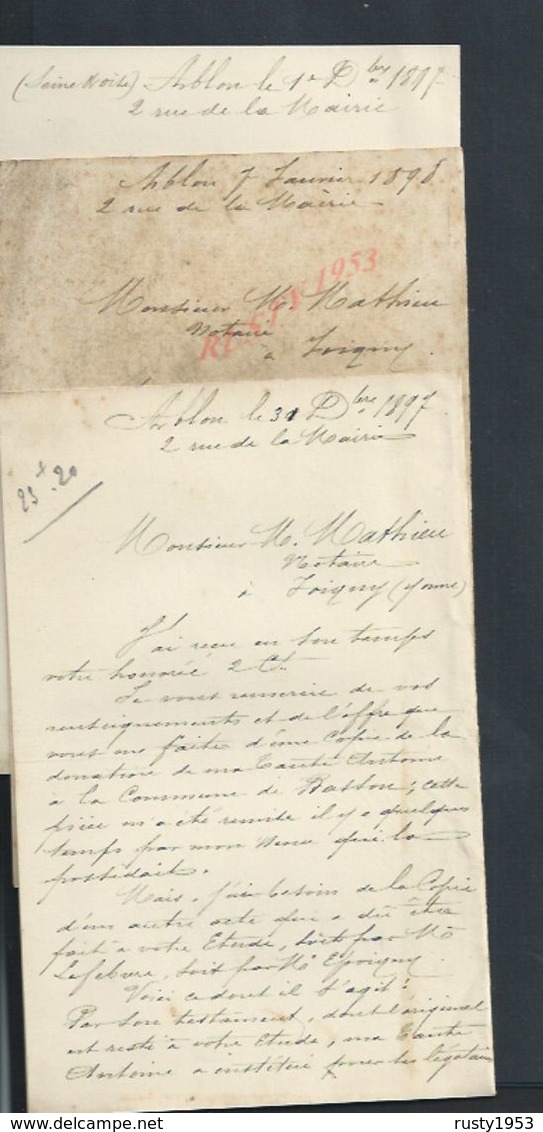 (Seine & Oise) Ablon le 1er Dbre 1897
2 rue de la Mairie
Ablon 7 Janvier 1898
2 rue de la Mairie
Monsieur M. Mathieu
RUSTY 1953
Notaire
à Joigny
Ablon le 31 Dbre 1897
2 rue de la Mairie
23 x 20
Monsieur M. Mathieu
Notaire
à Joigny (Yonne)
J'ai reçu en son temps
votre honorée 2 Ct.
Je vous remercie de vos
renseignements et de l'offre que
vous me faite d'une Copie de la
donation de ma tante Antoine
à la Commune de Bassou ; cette
pièce m'a été remise il y a quelques
temps par mon neveu qui la
possédait.
Mais, j'ai besoin de la Copie
d'un autre acte qui a dû être
fait à votre Etude, soit par Me
Lefebvre, soit par Me Epoigny.
Voici ce dont il s'agit :
Par son testament, dont l'original
est resté à votre Etude, ma tante
Antoine a institué pour ses légataires
rusty1953